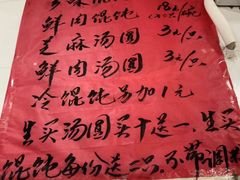 鲜肉馄饨 18元/碗
芝麻汤圆 3元/只
鲜肉汤圆 3元/只
冷馄饨另加1元
生买汤圆买十送一、生买
馄饨每份送二只。不带调料